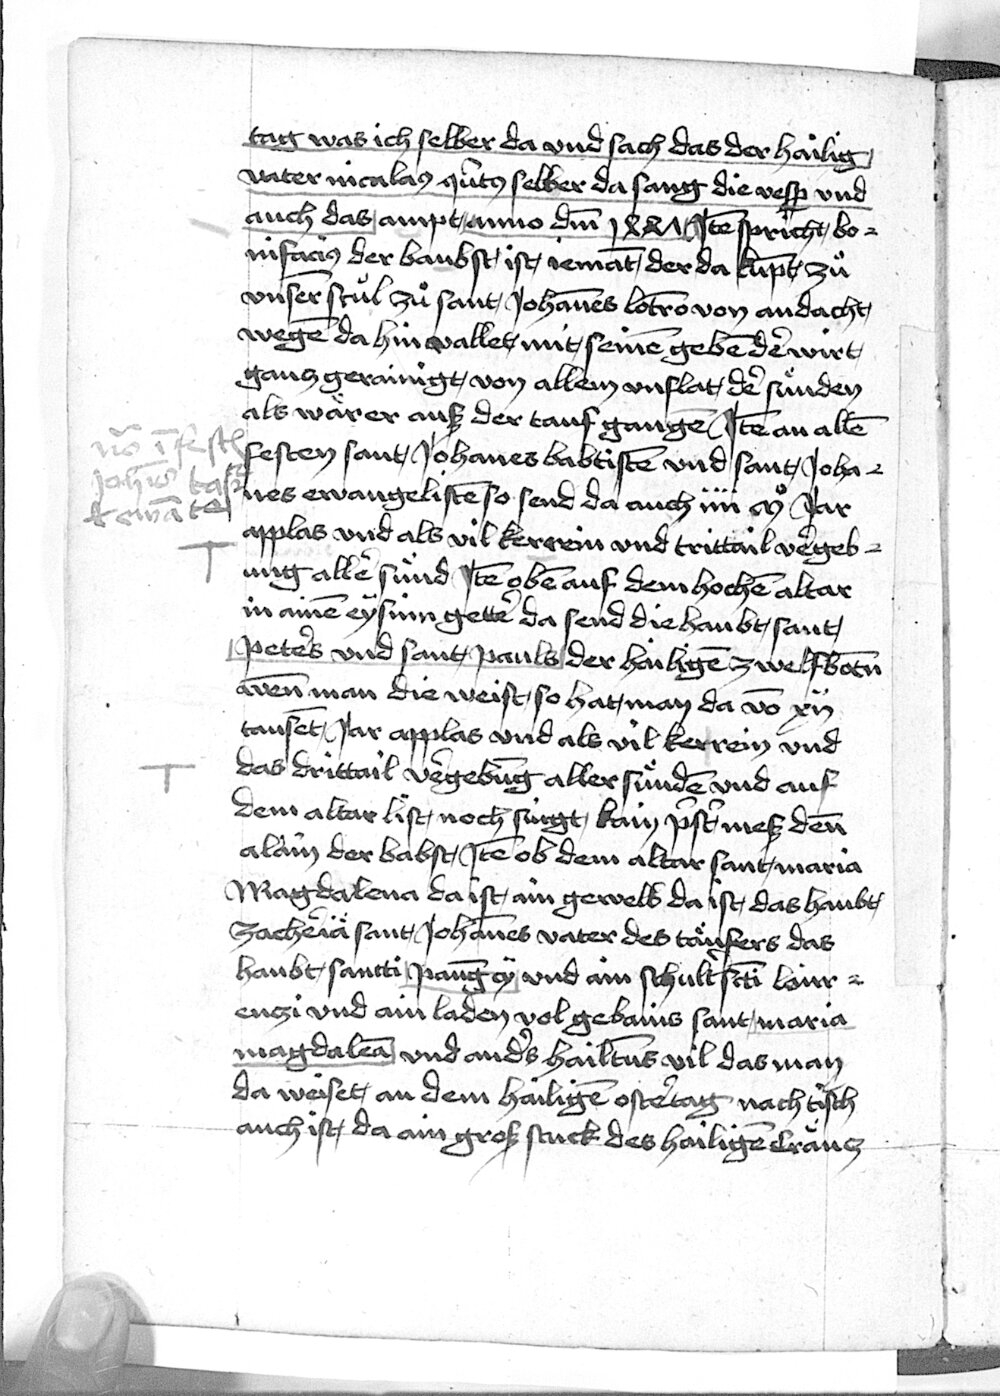 tag was ich selber da vnd sach das der hailig
vater nicalaus qūtus selber da sang die vesp vnd
auch das ampt anno dm̄ Itē spricht bo-
nifacius der baubst ist iemāt der da kūpt zů
vnser stůl zů sant Johānes von andacht
wegē da hin wallet mit seinē gebē der wirt
gancz gerainigt von allem vnflat der sünden
als wär er auß der tauf gangē Itē an allē
festen sant Johanes babtistē vnd sant Joha-
nes ewangelistē so send da auch iiii Jar
applas vnd als vil kerrein vnd trittail vergeb-
ung aller sünd Itē obē auf dem hochē altar
in ainē eysnin getter da send die haubt sant
peters vnd sant pauls der hailigē zwelfbotn̄
wen̄ man die weist so hat man da vō xii
tausēt Jar applas vnd als vil kerrein vnd
das drittail vergebūg aller sündē vnd auf
dem altar list noch singt kain pst̄er meß den̄
alain der babst Itē ob dem altar sant maria
Magdalena da ist ain gewelb da ist das haubt
zacheriä sant Johānes vater des täufers das
haubt sancti vnd ain schult scti laur-
enczi vnd ain laden vol gebains sant maria
magdalēa vnd anders hailtūs vil das man
da weiset an dem hailigē ostertag nach tisch
auch ist da ain groß stuck des hailigē cräucz